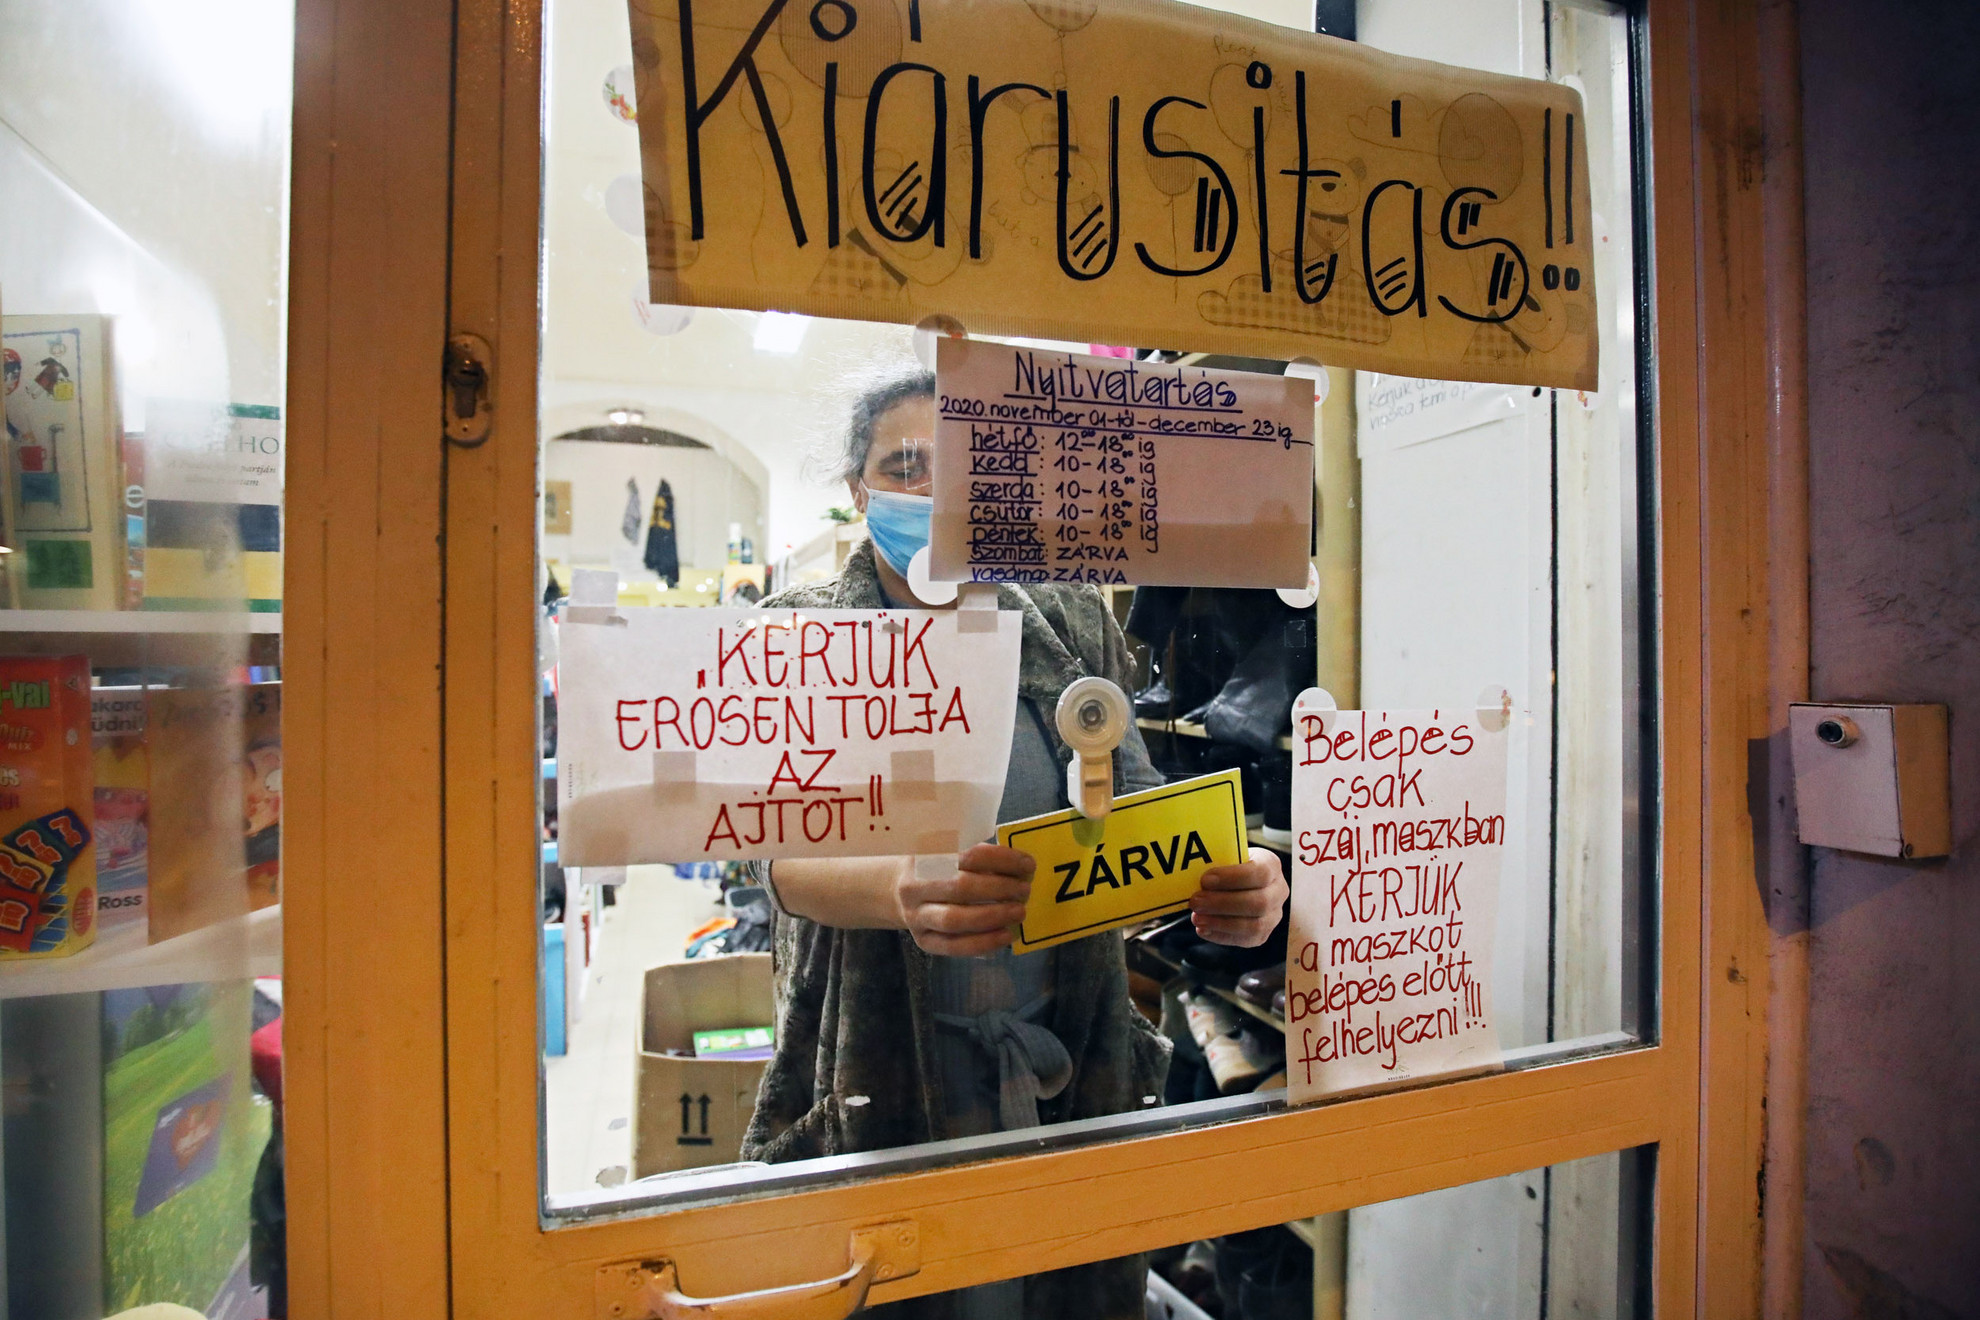 Kiárusítás!!
Nyitvatartás
2020. november 01-től - december 23 ig
hétfő: 12⁰⁰-18⁰⁰ ig
Kedd: 10-18⁰⁰ ig
szerda: 10-18⁰⁰ ig
csütör: 10-18⁰⁰ ig
péntek: 10-18⁰⁰ ig
szombat: ZÁRVA
vasárnap: ZÁRVA
KÉRJÜK
ERŐSEN TOLJA
AZ
AJTÓT!!
ZÁRVA
Belépés
csak
száj, maszkban
KÉRJÜK
a maszkot
belépés előtt
felhelyezni!!!
Ross